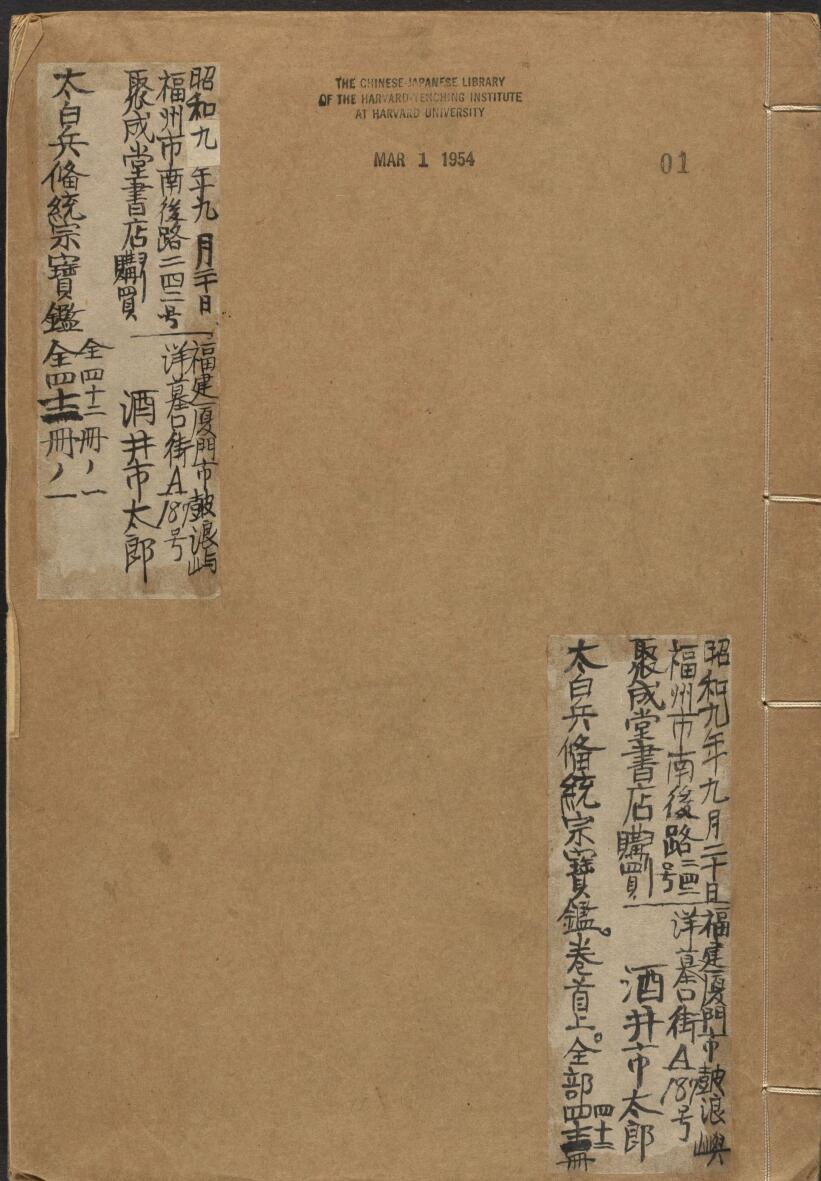 THE CHINESE-JAPANESE LIBRARY
OF THE HARVARD-YENCHING INSTITUTE
AT HARVARD UNIVERSITY
MAR 1 1954
01
昭和九年九月二十日
福州市南後路二四二号
聚成堂書店ヨリ購買
福建厦門市鼓浪屿
洋墓口街A187号
酒井市太郎
太白兵俻統宗寶鑑
全四十二冊ノ一
全四十二冊ノ一
昭和九年九月二十日
福州市南後路二四二号
聚成堂書店ヨリ購買
福建厦門市鼓浪嶼
洋墓口街A187号
酒井市太郎
太白兵俻統宗寶鑑。卷首上。全部四十二冊